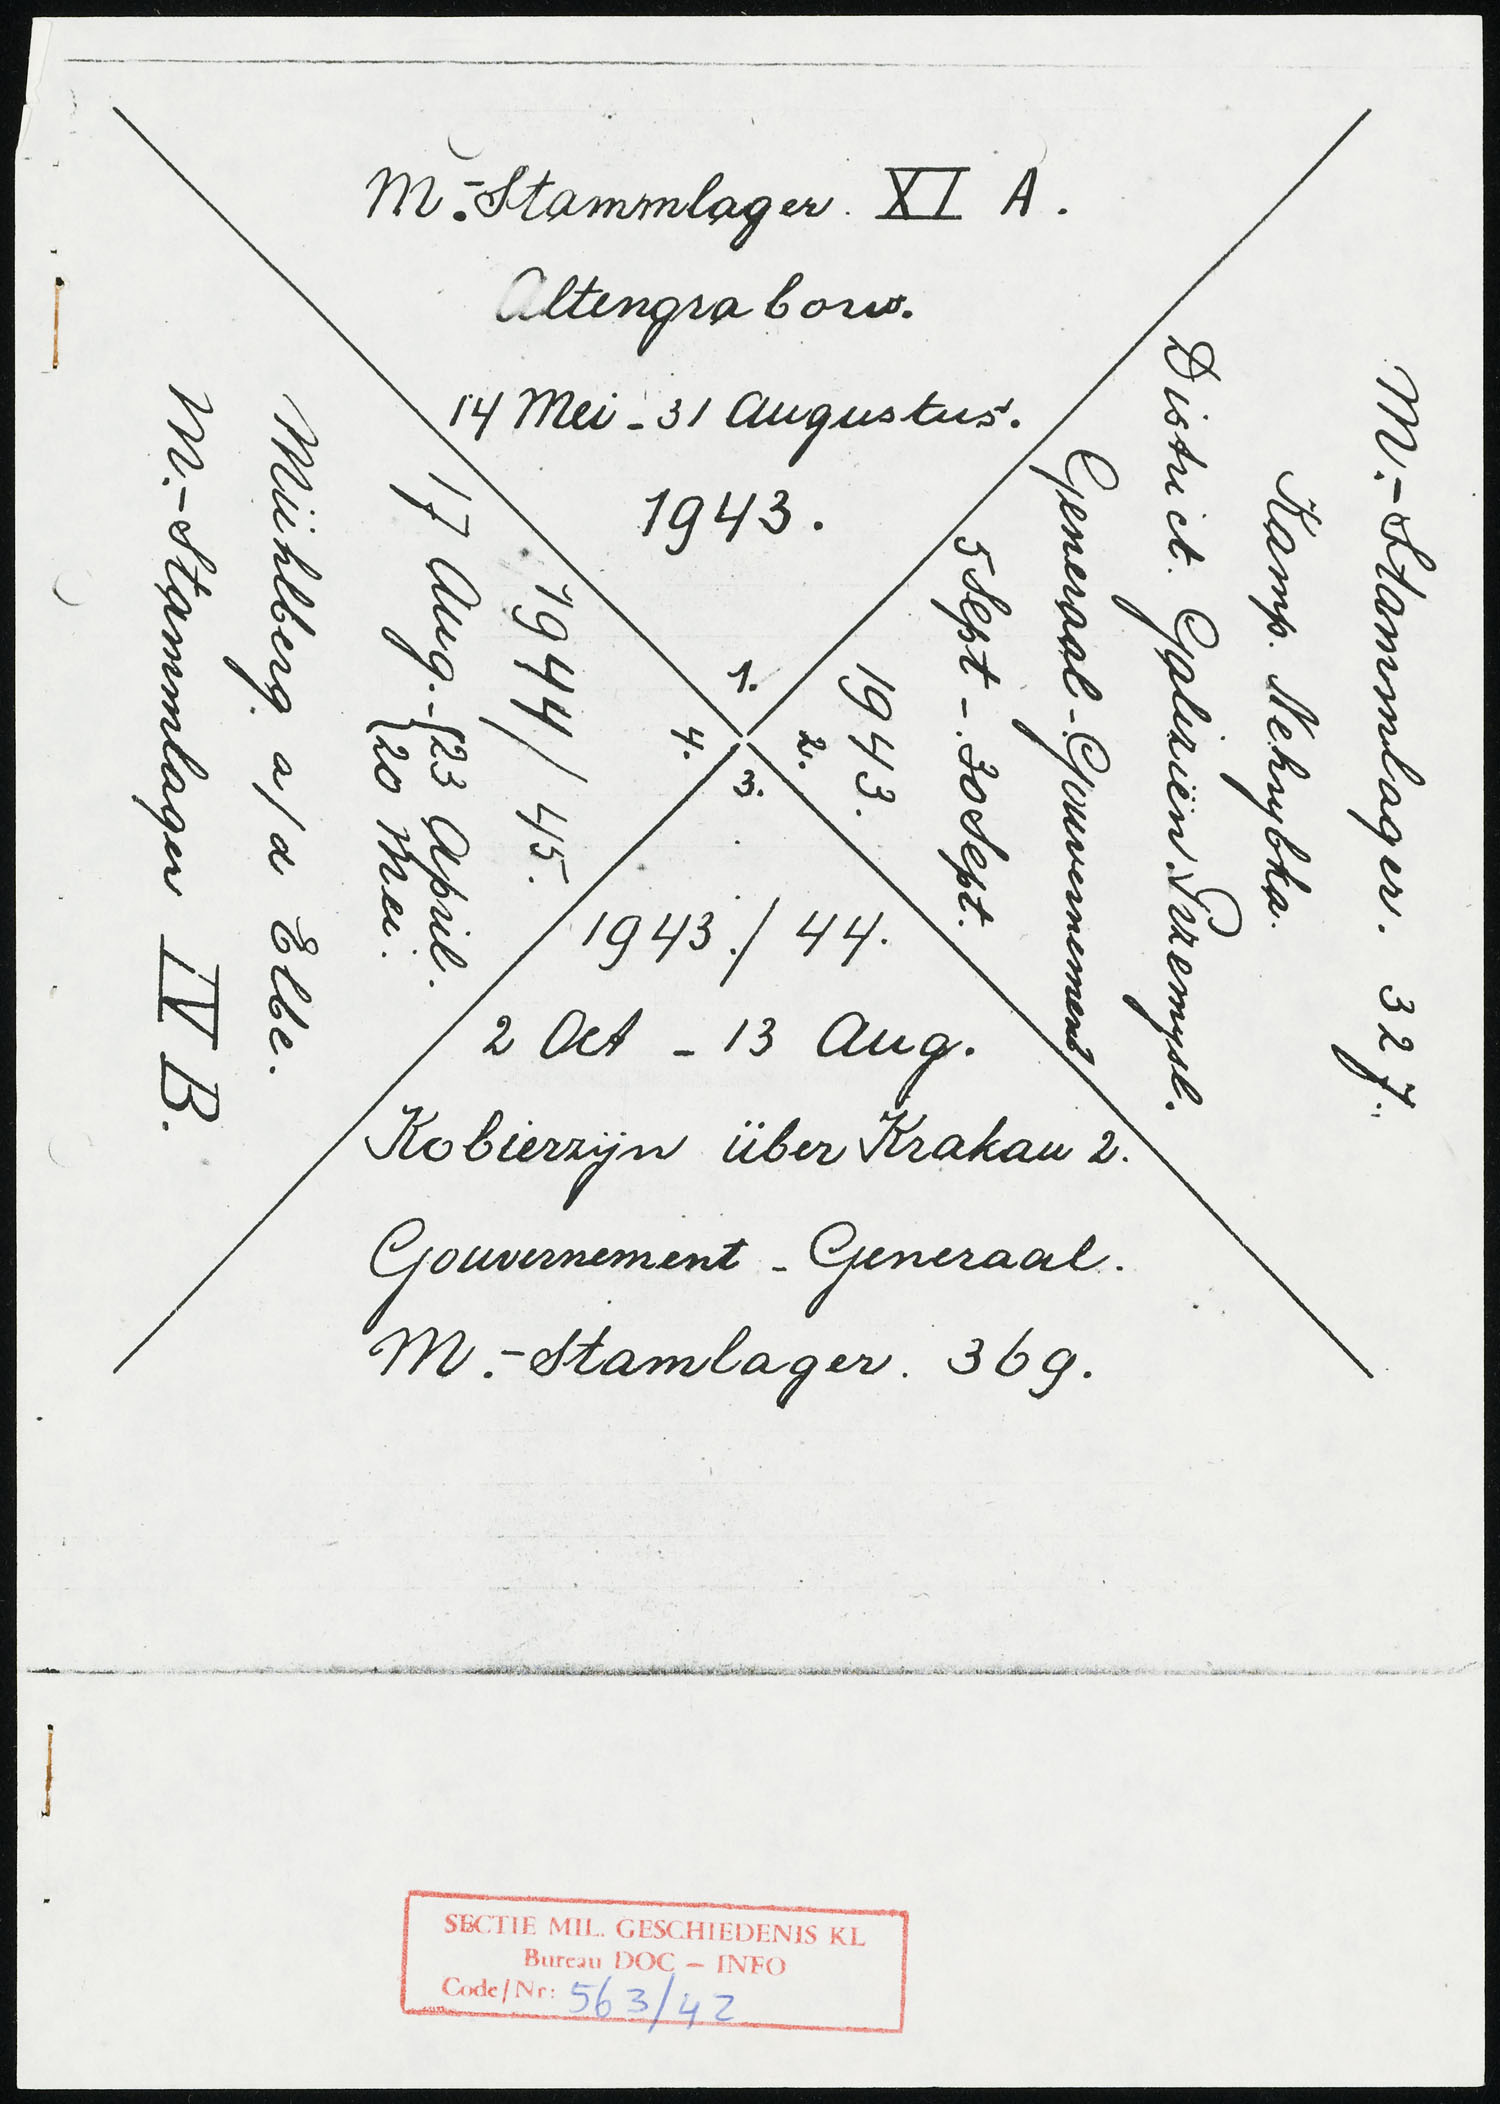 M.-Stammlager. XI A.
Altengrabow.
14 Mei - 31 Augustus.
1943.
1.
M.-Stammlager. 327.
Kamp. Nehrybka.
District. Galiziën Przemysl.
Generaal-Gouvernement
5 Sept - 30 Sept.
1943.
2.
3.
1943./44.
2 Oct - 13 Aug.
Kobierzÿn über Krakau 2.
Gouvernement - Generaal.
M.-Stamlager. 369.
4.
1944/45.
17 Aug. - {23 April.
{20 Mei.
Mühlberg. a/d Elbe.
M.-Stammlager IV B.
SECTIE MIL. GESCHIEDENIS KL
Bureau DOC – INFO
Code/Nr: 563/42